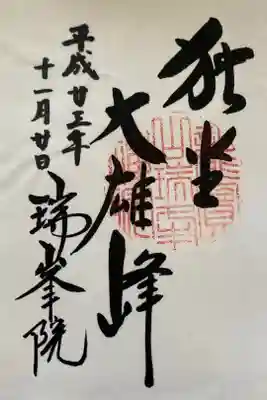 独坐
大雄峰
平成廿三年
十一月廿日
瑞峯院